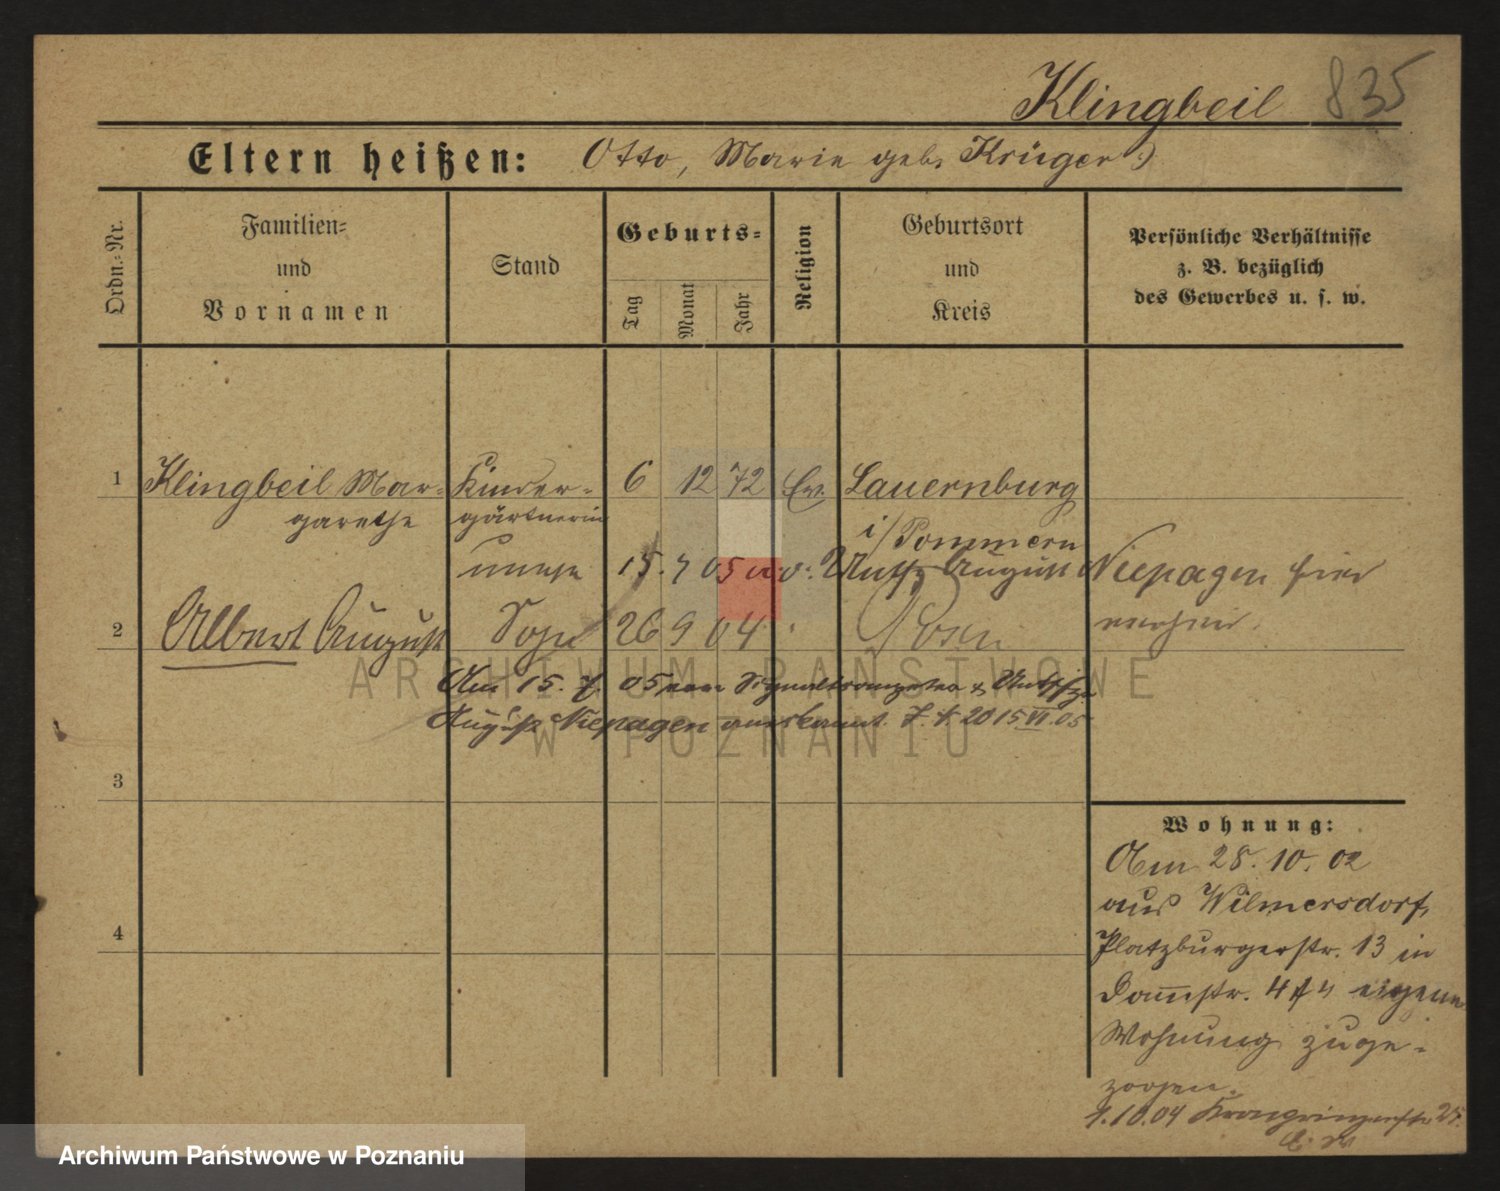 Klingbeil 835
Eltern heißen: Otto, Marie geb. Krüger
Ordn.=Nr.
Familien=
und
Vornamen
Stand
Geburts=
Tag
Monat
Jahr
Religion
Geburtsort
und
Kreis
Persönliche Verhältnisse
z. B. bezüglich
des Gewerbes u. s. w.
1 Klingbeil Mar- Kinder- 6 12 72 Ev. Lauernburg
garethe gärtnerin
i/Pommern
unehe 15. 7 05 August Niepagen hier
2 Albert August Sohn 26 9 04 Posen
Am 15. 7. 05
August Niepagen anerkannt. 20 15 VI. 05
ARCHIWUM PAŃSTWOWE
W POZNANIU
3
4
Wohnung:
Am 28. 10. 02
aus Wilmersdorf,
Platzburgerstr. 13 in
Dammstr. 4 eigene
Wohnung zuge-
zogen.
1.10.04 25.
Archiwum Państwowe w Poznaniu